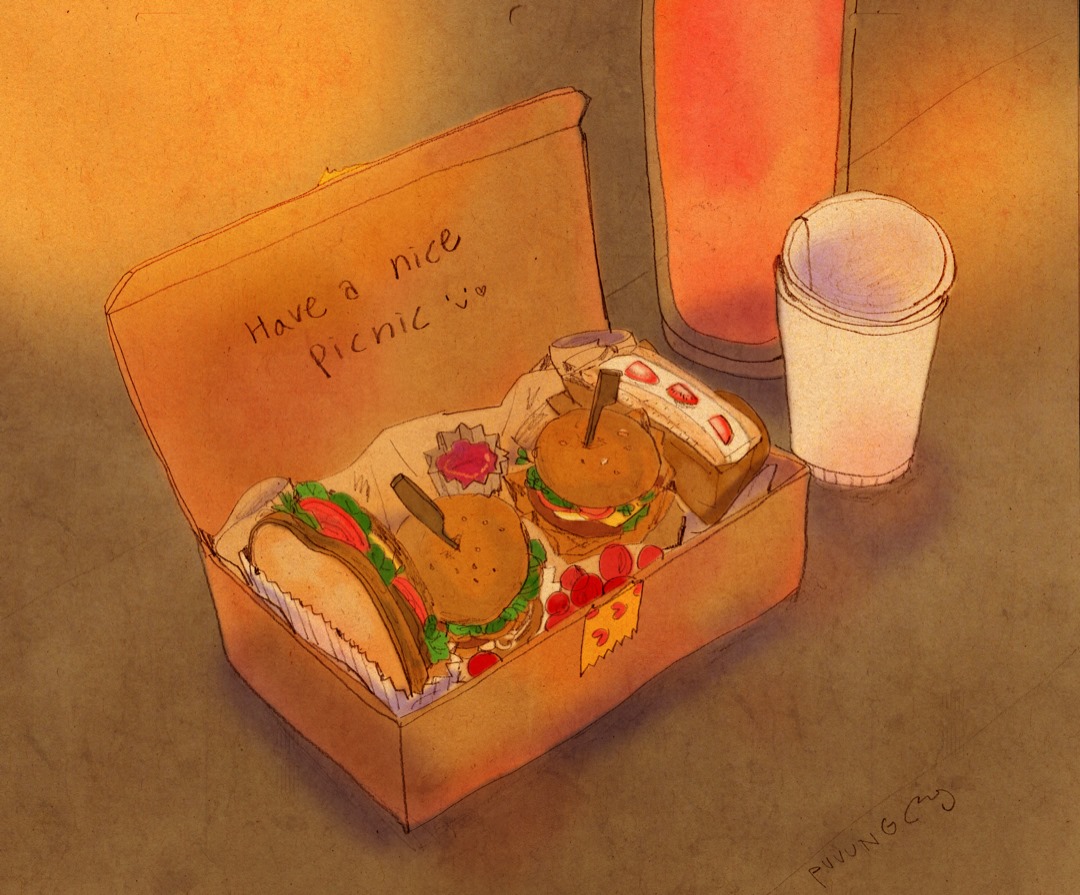 Have a nice
Picnic
PUUUNG